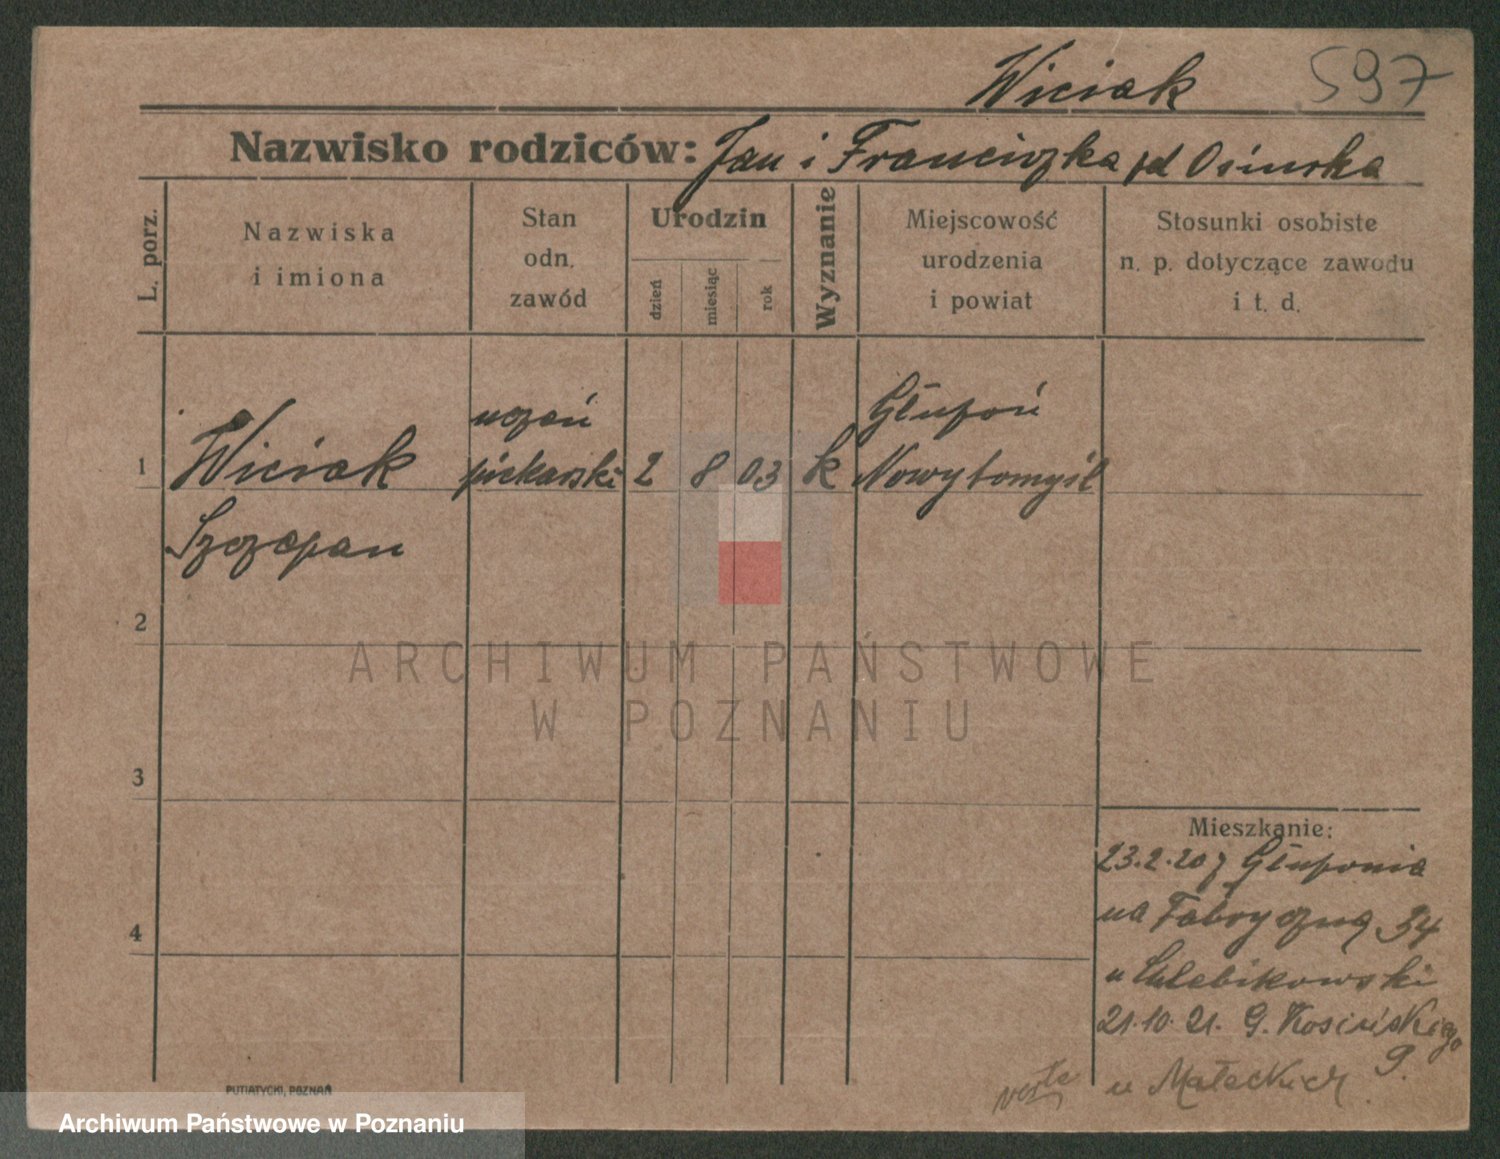 Wiciak 597
Nazwisko rodziców: Jan i Franciszka zd Osinska
L. porz.
Nazwiska
i imiona
Stan
odn.
zawód
Urodzin
dzień
miesiąc
rok
Wyznanie
Miejscowość
urodzenia
i powiat
Stosunki osobiste
n. p. dotyczące zawodu
i t. d.
1 Wiciak uczeń piekarski 2 8 03 k Głupoń Nowytomyśl
Szczepan
2
3
4
Mieszkanie:
23.2.20 z Głuponia
na Fabryczną 34
u Chlebikowski
21.10.21. G. Kosińskiego
9.
u Małeckich
PUTIATYCKI, POZNAŃ
ARCHIWUM PAŃSTWOWE
W POZNANIU
Archiwum Państwowe w Poznaniu